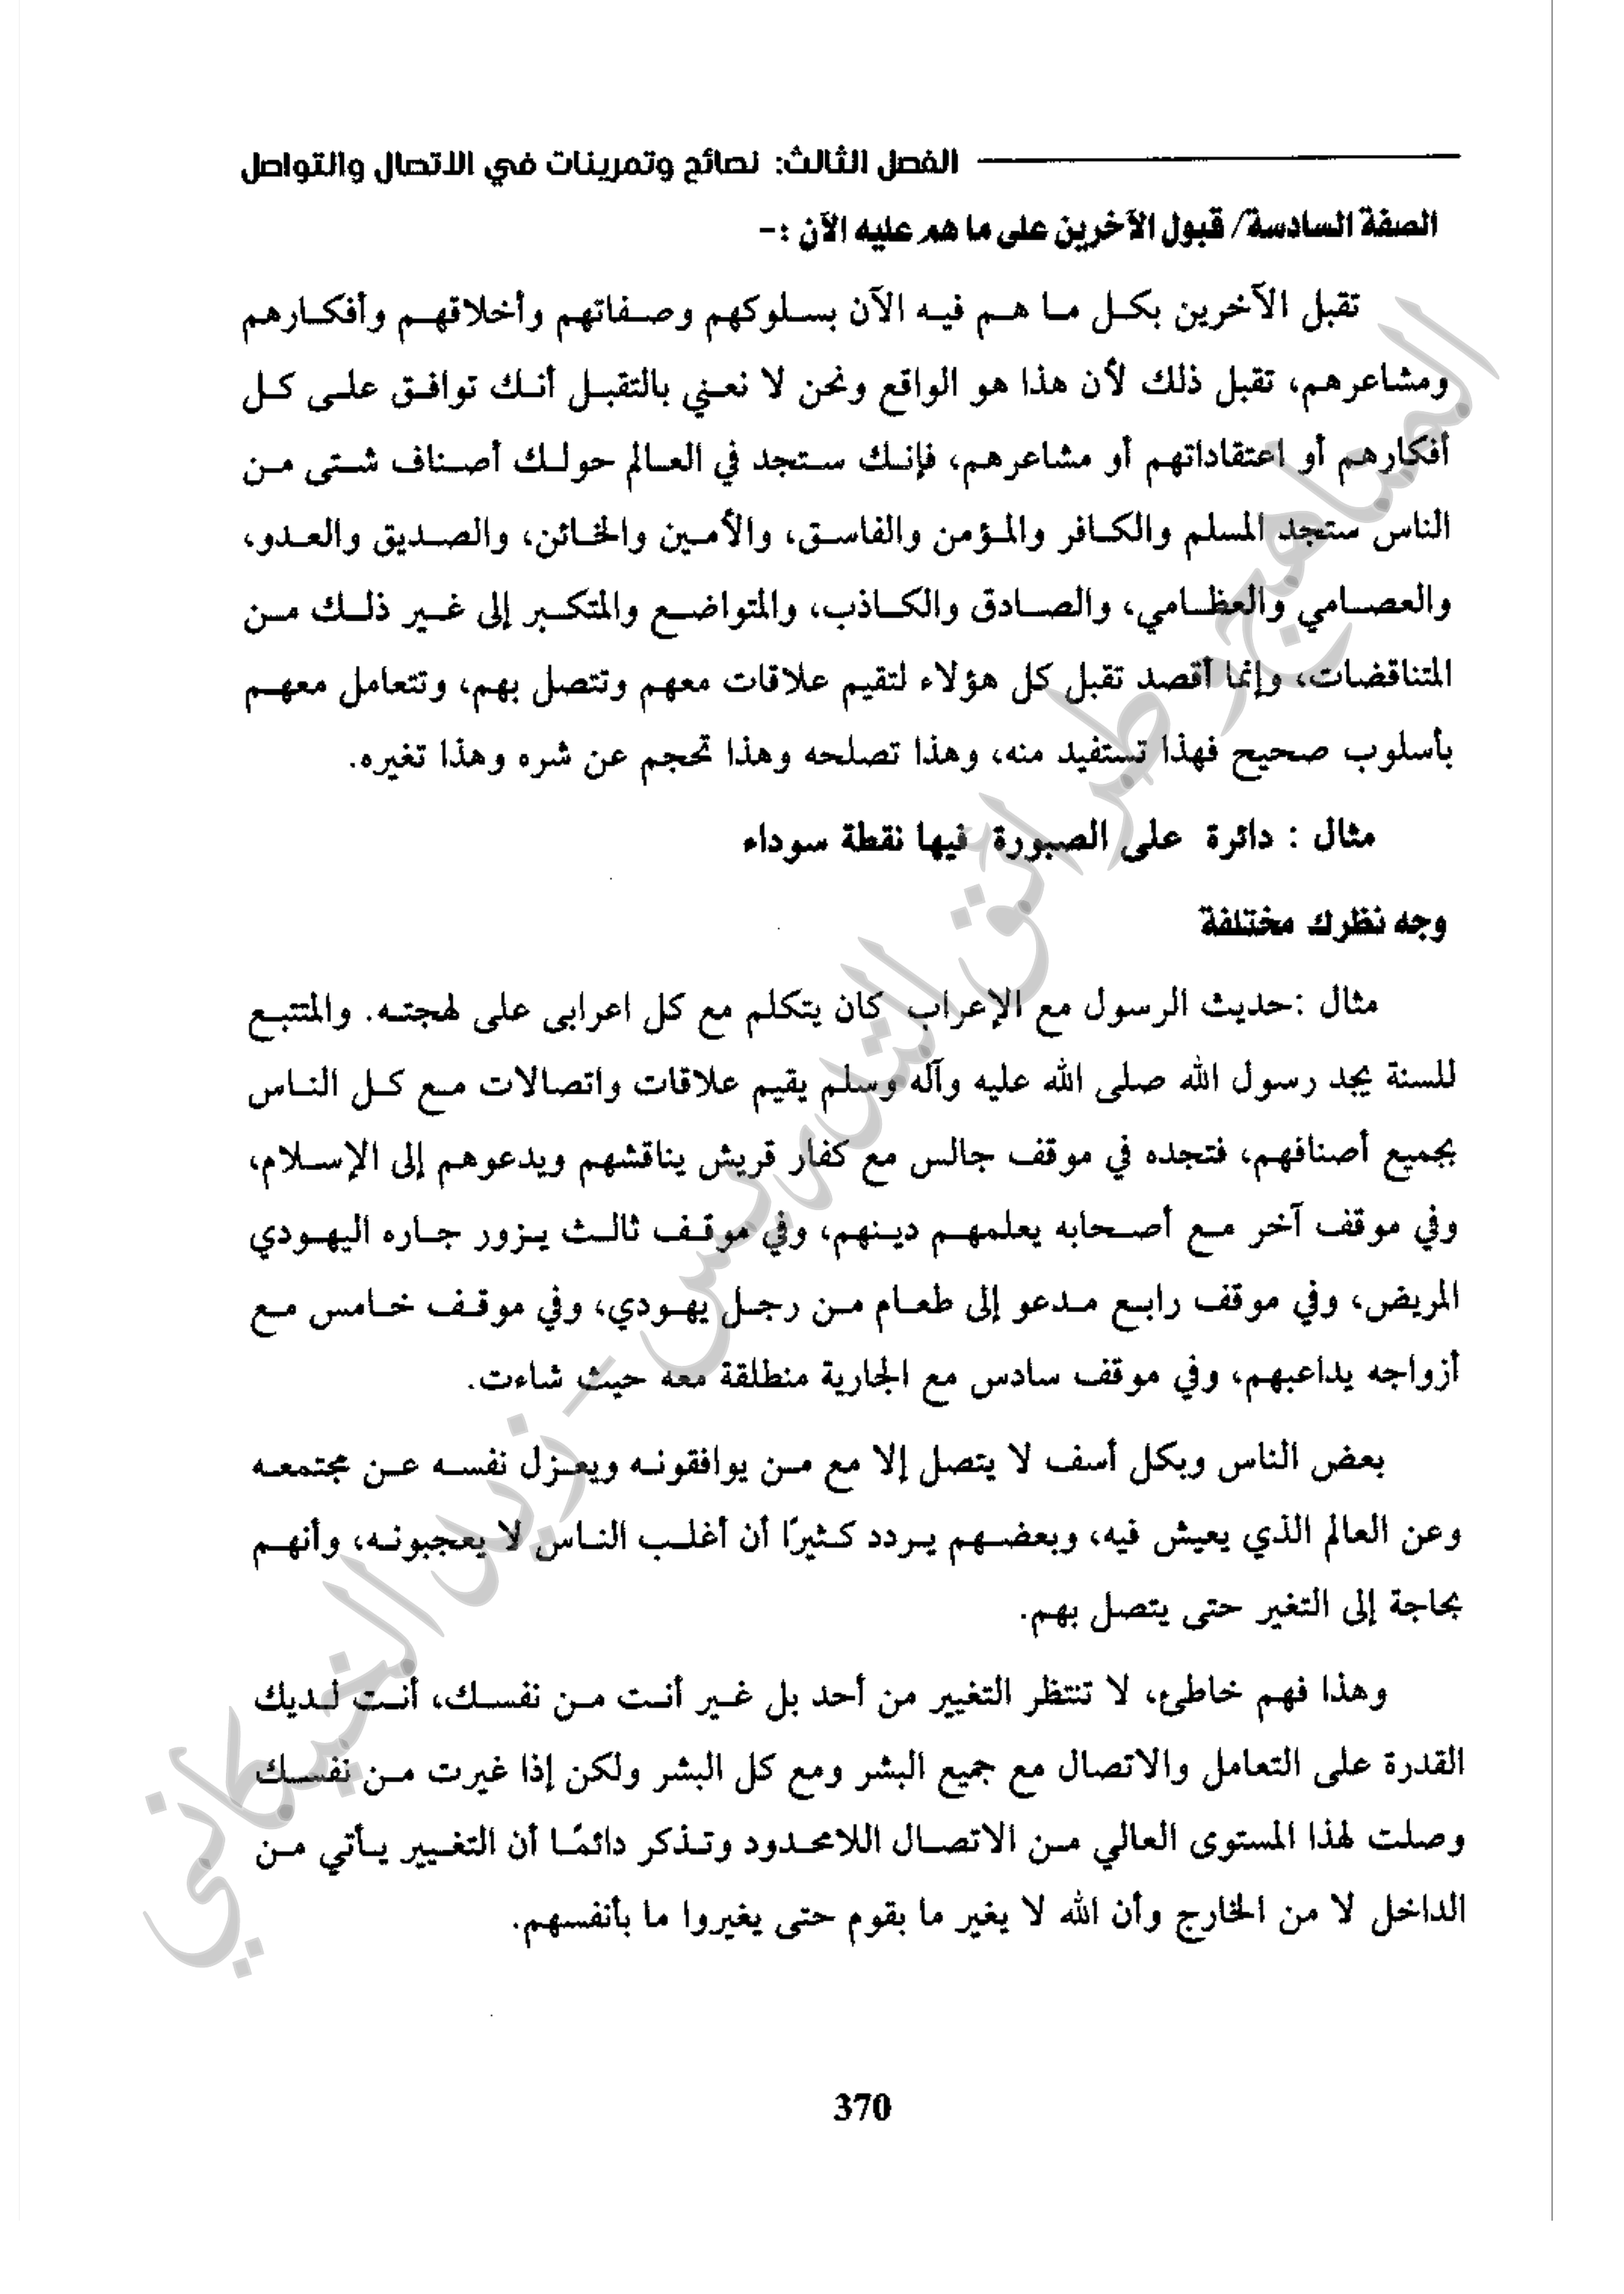 الفصل الثالث: نصائح وتمرينات في الاتصال والتواصل
الصفة السادسة/ قبول الآخرين على ما هم عليه الآن :-
تقبل الآخرين بكل ما هم فيه الآن بسلوكهم وصفاتهم وأخلاقهم وأفكارهم
ومشاعرهم، تقبل ذلك لأن هذا هو الواقع ونحن لا نعني بالتقبل أنك توافق على كل
أفكارهم أو اعتقاداتهم أو مشاعرهم، فإنك ستجد في العالم حولك أصناف شتى من
الناس ستجد المسلم والكافر والمؤمن والفاسق، والأمين والخائن، والصديق والعدو،
والعصامي والعظامي، والصادق والكاذب، والمتواضع والمتكبر إلى غير ذلك من
المتناقضات، وإنما أقصد تقبل كل هؤلاء لتقيم علاقات معهم وتتصل بهم، وتتعامل معهم
بأسلوب صحيح فهذا تستفيد منه، وهذا تصلحه وهذا تحجم عن شره وهذا تغيره.
مثال : دائرة على الصبورة فيها نقطة سوداء
وجه نظرك مختلفة
مثال :حديث الرسول مع الإعراب كان يتكلم مع كل اعرابى على لهجته. والمتتبع
للسنة يجد رسول الله صلى الله عليه وآله وسلم يقيم علاقات واتصالات مع كل الناس
بجميع أصنافهم، فتجده في موقف جالس مع كفار قريش يناقشهم ويدعوهم إلى الإسلام،
وفي موقف آخر مع أصحابه يعلمهم دينهم، وفي موقف ثالث يزور جاره اليهودي
المريض، وفي موقف رابع مدعو إلى طعام من رجل يهودي، وفي موقف خامس مع
أزواجه يداعبهم، وفي موقف سادس مع الجارية منطلقة معه حيث شاءت.
بعض الناس وبكل أسف لا يتصل إلا مع من يوافقونه ويعزل نفسه عن مجتمعه
وعن العالم الذي يعيش فيه، وبعضهم يردد كثيرًا أن أغلب الناس لا يعجبونه، وأنهم
بحاجة إلى التغير حتى يتصل بهم.
وهذا فهم خاطئ، لا تنتظر التغيير من أحد بل غير أنت من نفسك، أنت لديك
القدرة على التعامل والاتصال مع جميع البشر ومع كل البشر ولكن إذا غيرت من نفسك
وصلت لهذا المستوى العالي من الاتصال اللامحدود وتذكر دائمًا أن التغيير يأتي من
الداخل لا من الخارج وأن الله لا يغير ما بقوم حتى يغيروا ما بأنفسهم.
370
المناهج وطرائق التدريس - زيد الخيكاني